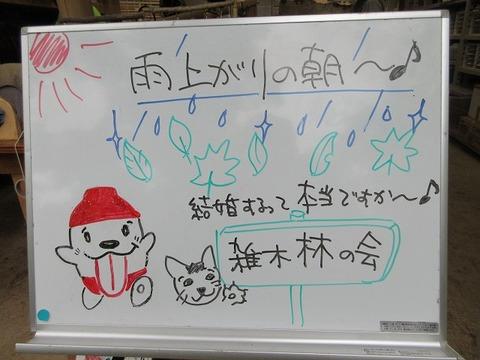 雨上がりの朝〜♪
結婚するって本当ですか〜♪
雑木林の会